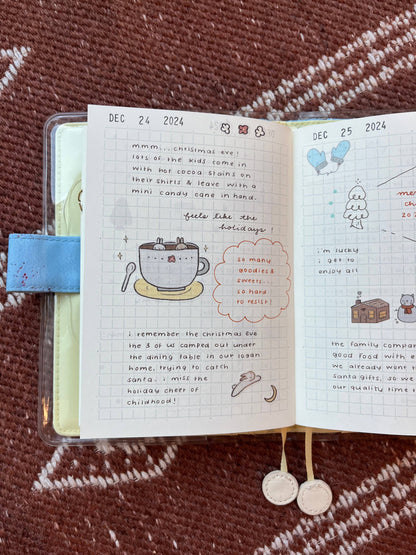 DEC 24 2024
mmm... christmas eve!
lots of the kids come in
with hot cocoa stains on
their shirts & leave with a
mini candy cane in hand.
feels like the
holidays!
so many
goodies &
sweets...
so hard
to resist!
i remember the christmas eve
the 3 of us camped out under
the dining table in our logan
home, trying to catch
santa. i miss the
holiday cheer of
childhood!
DEC 25 2024
i'm lucky
i get to
enjoy all
the family compan
good food with e
we already went t
santa gifts, so we
our quality time t